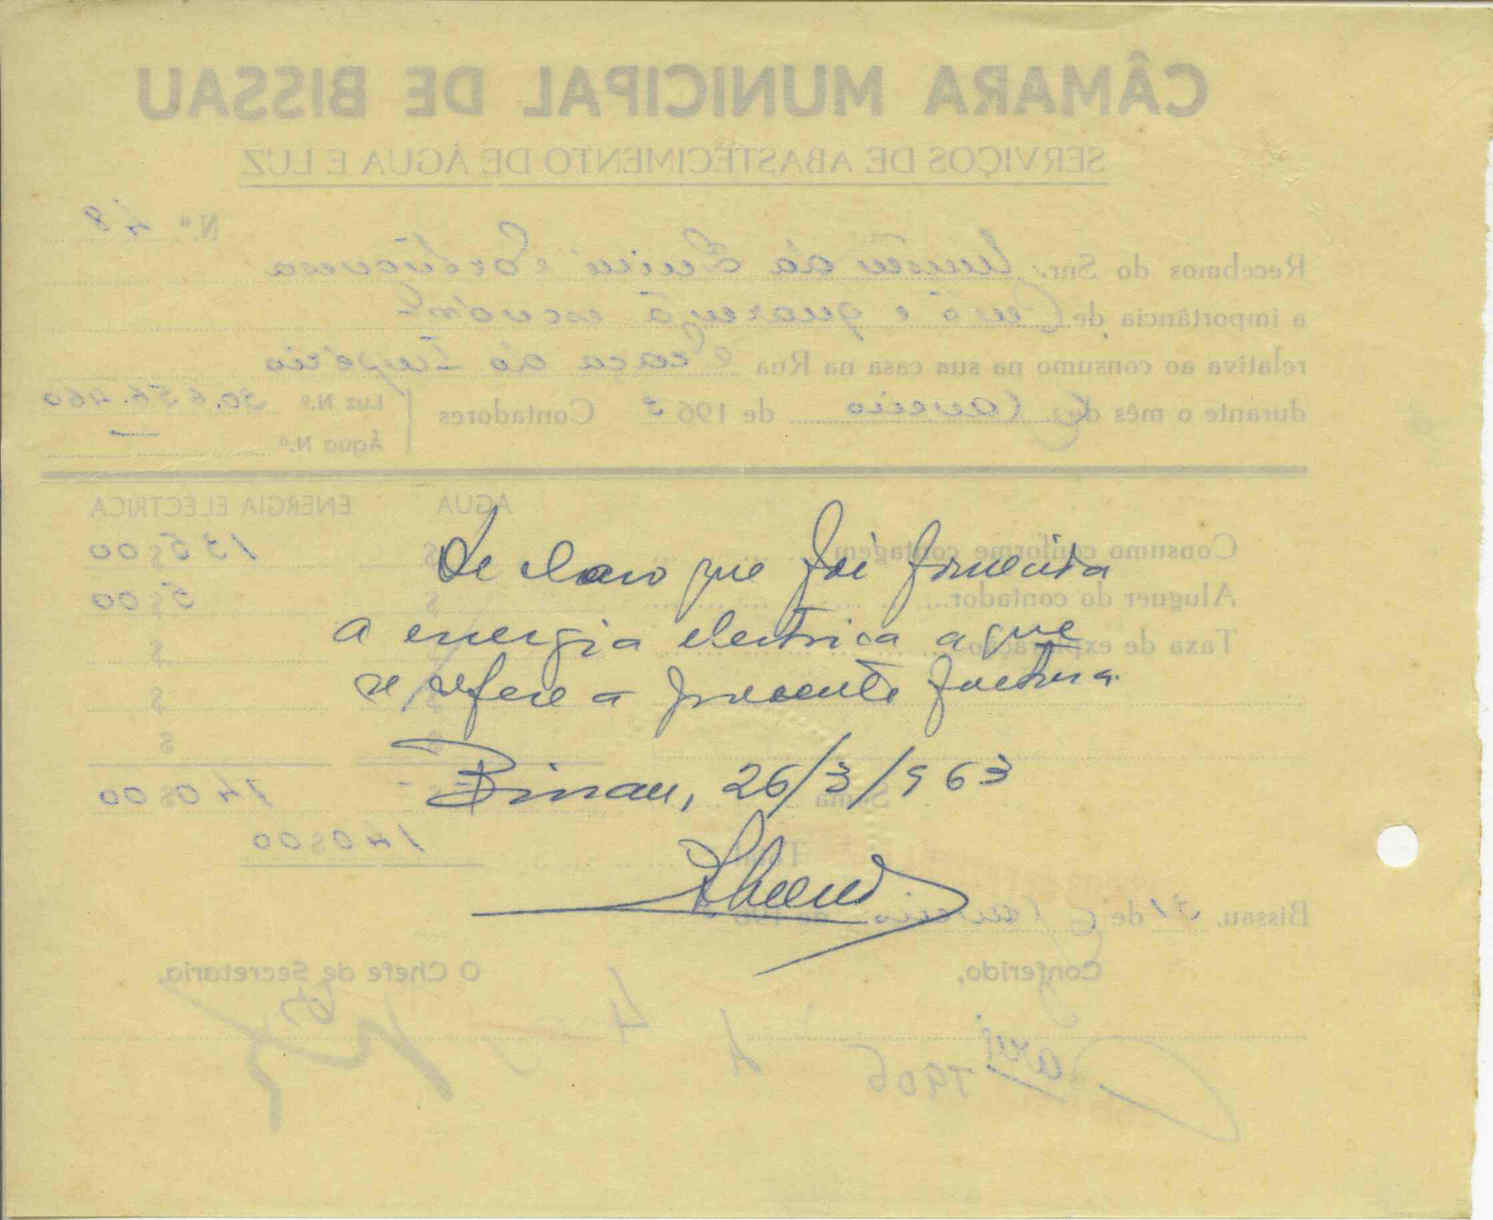 CÂMARA MUNICIPAL DE BISSAU
SERVIÇOS DE ABASTECIMENTO DE ÁGUA E LUZ
N.º 48
Recebemos do Snr. Museu da Guiné Portuguesa
a importância de Cento e quarenta escudos
relativa ao consumo na sua casa na Rua Praça do Império
durante o mês de Janeiro de 1963 Contadores
Luz N.º 30.656.460
Água N.º —
ÁGUA ENERGIA ELECTRICA
Consumo conforme contagem $ 135$00
Aluguer do contador $ 5$00
Taxa de exploração $
$
$
Soma 140$00
140$00
Declaro que foi fornecida
a energia electrica a que
se refere a presente factura.
Bissau, 26/3/963
Bissau, 31 de Janeiro de 196
Conferido, O Chefe de Secretaria,